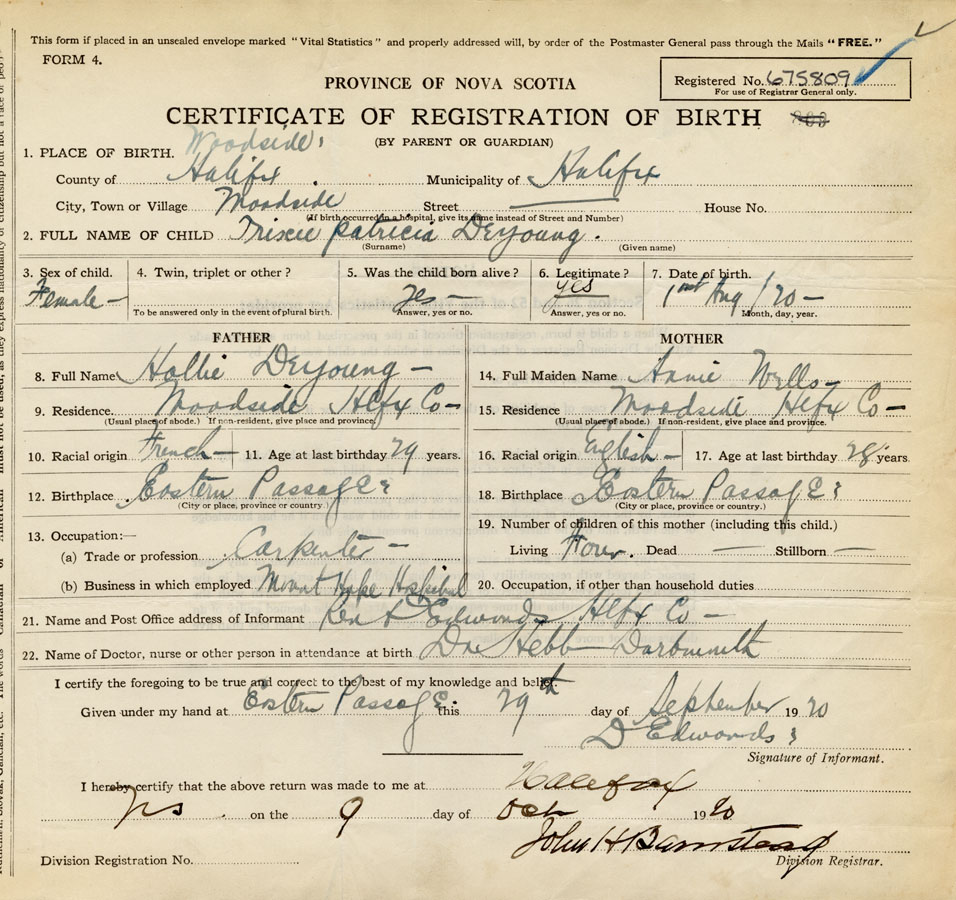 This form if placed in an unsealed envelope marked "Vital Statistics" and properly addressed will, by order of the Postmaster General pass through the Mails "FREE."
FORM 4.
Registered No. 675809
For use of Registrar General only.
PROVINCE OF NOVA SCOTIA
CERTIFICATE OF REGISTRATION OF BIRTH
(BY PARENT OR GUARDIAN)
1. PLACE OF BIRTH. Woodside
County of Halifx Municipality of Halifx
City, Town or Village Woodside Street House No.
(If birth occurred in a hospital, give its name instead of Street and Number)
2. FULL NAME OF CHILD Trixie patricia Deyoung.
(Surname) (Given name)
3. Sex of child. 4. Twin, triplet or other? 5. Was the child born alive? 6. Legitimate? 7. Date of birth.
Female – yes – yes 1st Aug / 20 –
To be answered only in the event of plural birth. Answer, yes or no. Answer, yes or no. Month, day, year.
FATHER MOTHER
8. Full Name Hollie Deyoung – 14. Full Maiden Name Annie Wells –
9. Residence. Woodside Hlfx Co – 15. Residence Woodside Hlfx Co –
(Usual place of abode.) If non-resident, give place and province. (Usual place of abode.) If non-resident, give place and province.
10. Racial origin French – 11. Age at last birthday 29 years. 16. Racial origin English – 17. Age at last birthday 28 years
12. Birthplace Eostern Passage 18. Birthplace Eostern Passage
(City or place, province or country.) (City or place, province or country.)
13. Occupation:— 19. Number of children of this mother (including this child.)
(a) Trade or profession Carpenter – Living Four. Dead — Stillborn —
(b) Business in which employed Mount Hope Hospital 20. Occupation, if other than household duties
21. Name and Post Office address of Informant Edwords Hlfx Co –
22. Name of Doctor, nurse or other person in attendance at birth Dr Hebb Dartmouth
I certify the foregoing to be true and correct to the best of my knowledge and belief.
Given under my hand at Eostern Passage this 29th day of September 1920
D Edwords
Signature of Informant.
I hereby certify that the above return was made to me at Halifax
NS. on the 9 day of Oct 1920
John H Barnstead
Division Registration No. Division Registrar.